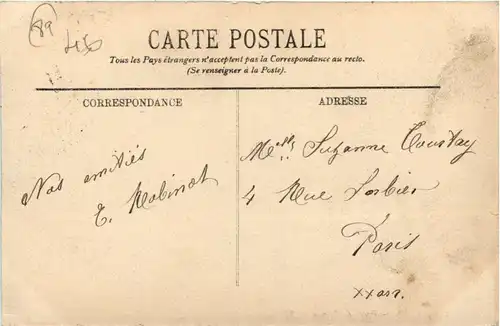 89
46
CARTE POSTALE
Tous les Pays étrangers n'acceptent pas la Correspondance au recto.
(Se renseigner à la Poste).
CORRESPONDANCE
ADRESSE
Nos amitiés
E. Robinot
Melle Suzanne Tourtay
4 Rue Sorbier
Paris
XXarr.